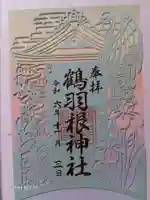 奉拝
鶴羽根神社
令和六年十一月三日